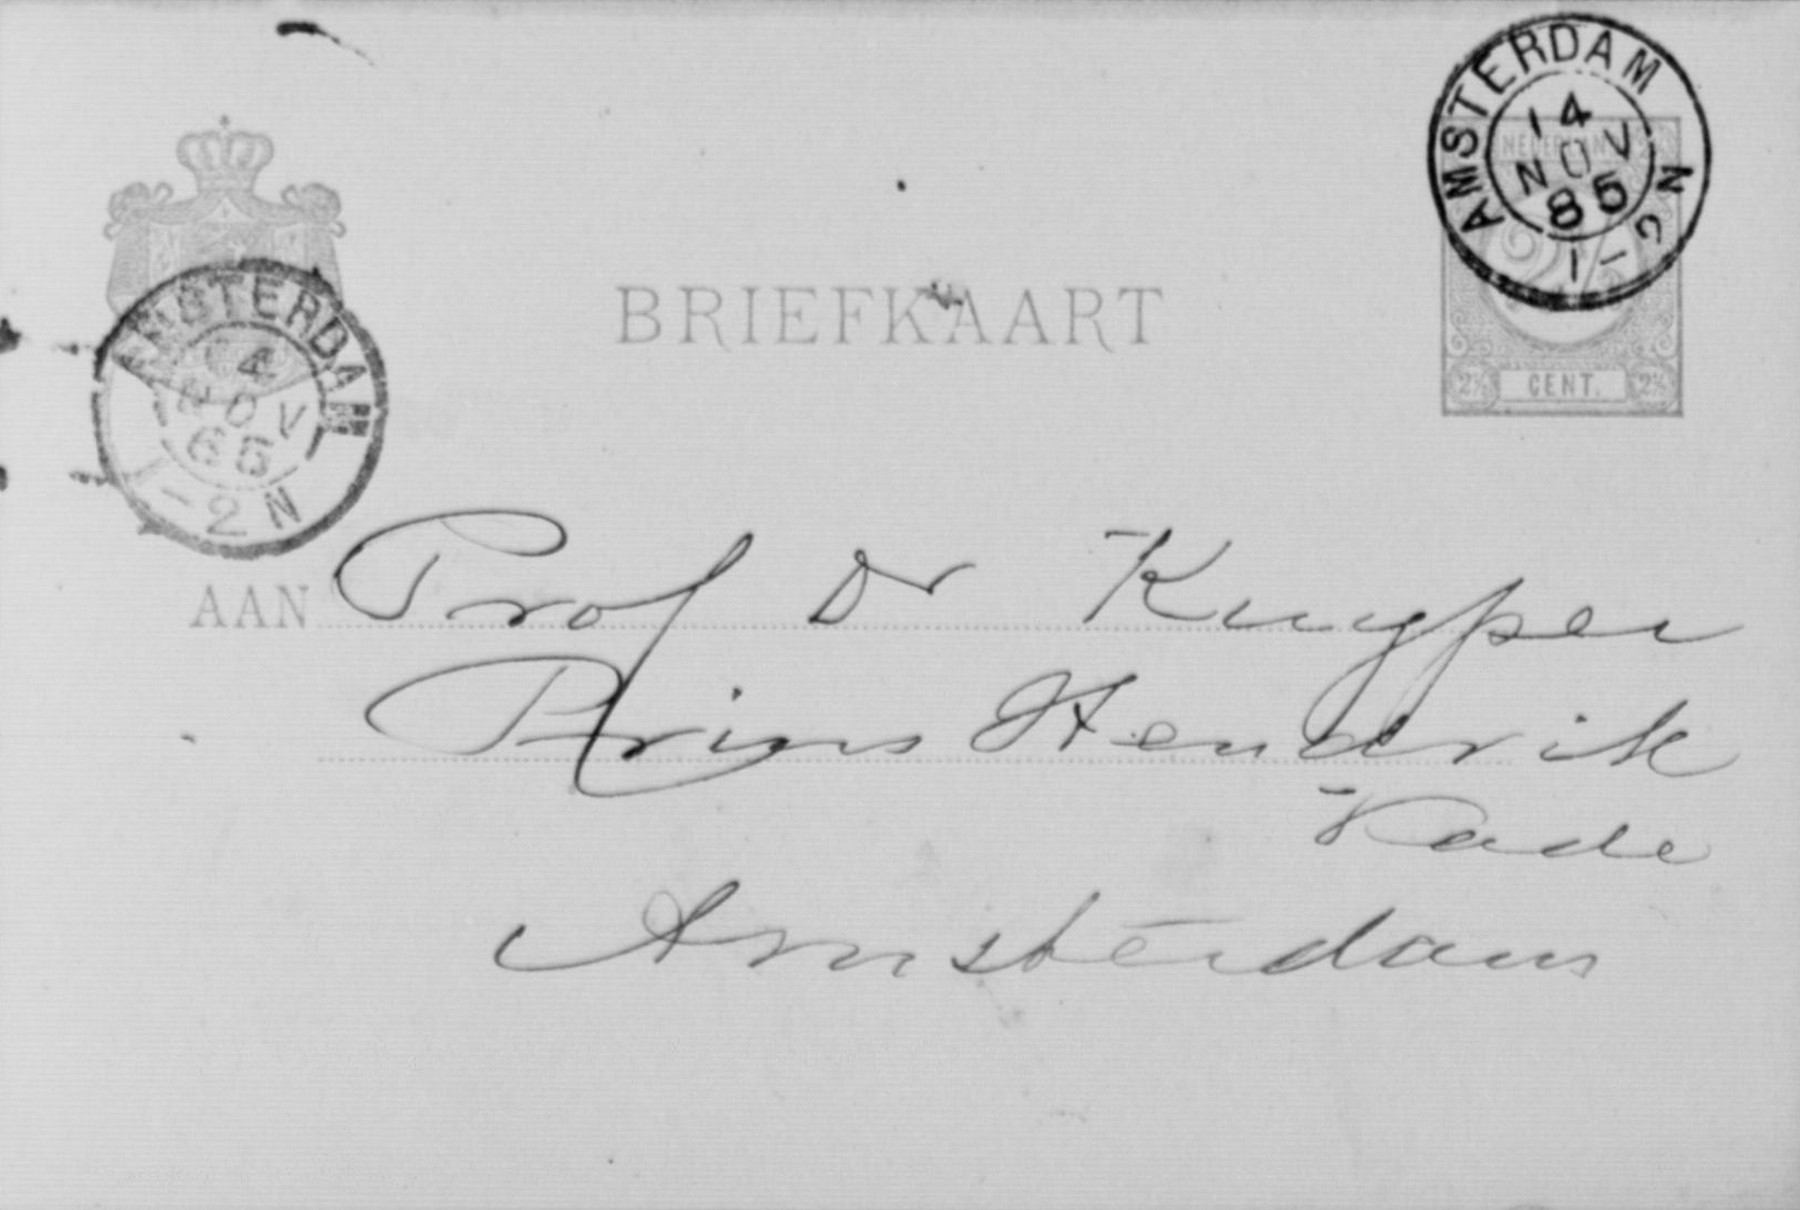 AMSTERDAM
14
NOV
85
1-2 N
NEDERLAND
2½
2½ CENT. 2½
BRIEFKAART
AMSTERDAM
14
NOV
85
1-2 N
AAN Prof Dr Kuyper
Prins Hendrik
Kade
Amsterdam